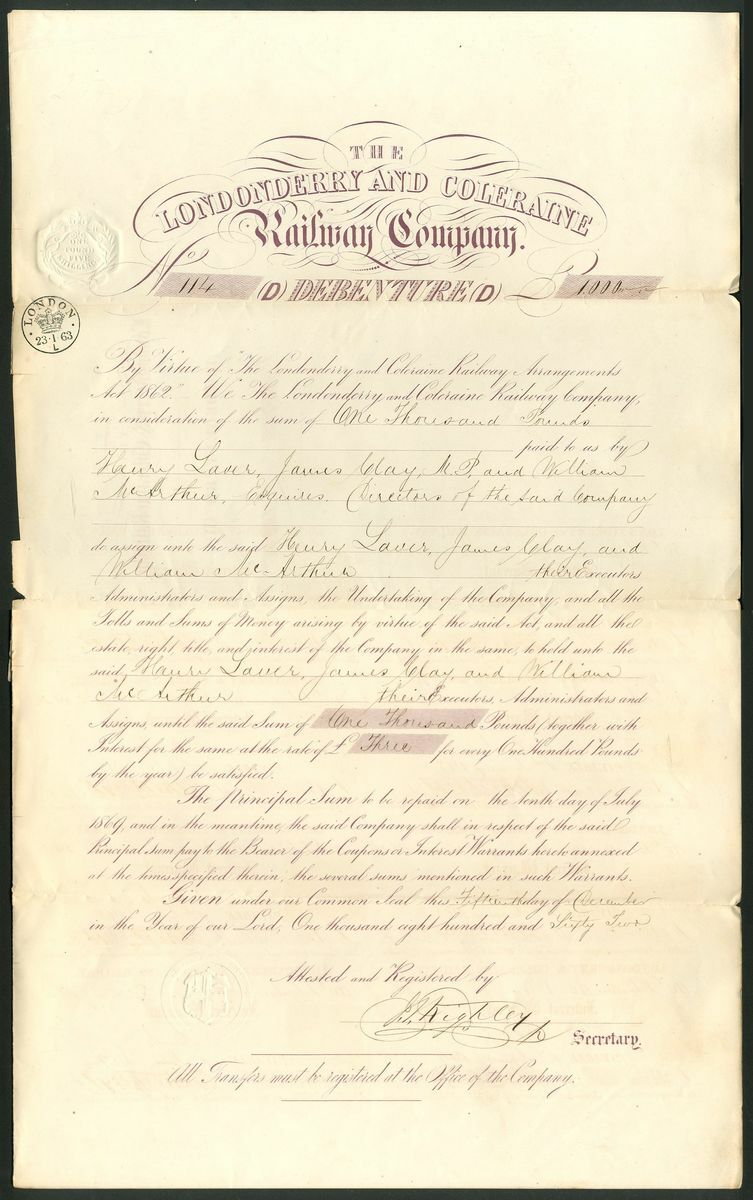 THE
LONDONDERRY AND COLERAINE
Railway Company.
ONE
POUND
FIVE
SHILLINGS
No 114 (D) DEBENTURE (D) £ 1000
LONDON
23·1 63
L
By Virtue of "The Londonderry and Coleraine Railway Arrangements
Act 1862." We The Londonderry and Coleraine Railway Company,
in consideration of the sum of One Thousand Pounds
paid to us by
Henry Laver, James Clay, M.P. and William
McArthur, Esquires. Directors of the said Company
do assign unto the said Henry Laver, James Clay, and
William McArthur their Executors
Administrators and Assigns, the Undertaking of the Company, and all the
Tolls and Sums of Money arising by virtue of the said Act, and all the
estate, right, title, and interest of the Company in the same, to hold unto the
said Henry Laver, James Clay, and William
McArthur their Executors, Administrators and
Assigns, until the said Sum of One Thousand Pounds (together with
Interest for the same at the rate of £ Three for every One Hundred Pounds
by the year) be satisfied.
The Principal Sum to be repaid on the tenth day of July
1869, and in the meantime, the said Company shall in respect of the said
Principal Sum pay to the Bearer of the Coupons or Interest Warrants hereto annexed
at the times specified therein, the several sums mentioned in such Warrants.
Given under our Common Seal this Fifteenth day of December
in the Year of our Lord, One thousand eight hundred and Sixty Two
Attested and Registered by
Secretary.
All Transfers must be registered at the Office of the Company.